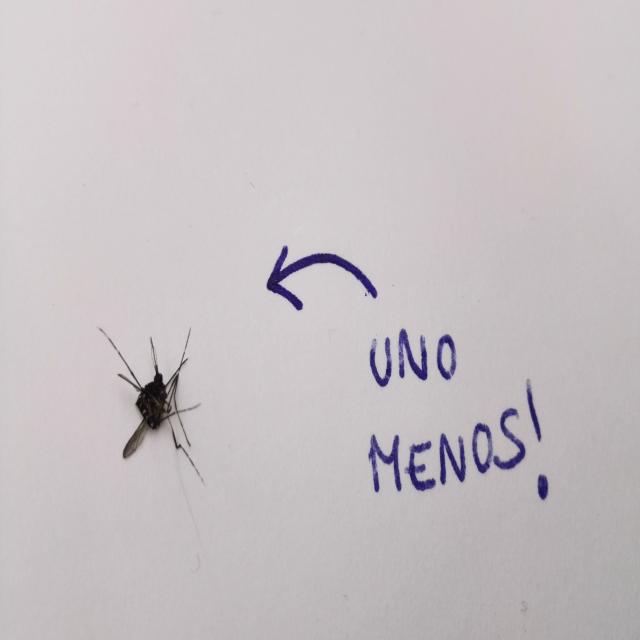 UNO
MENOS!